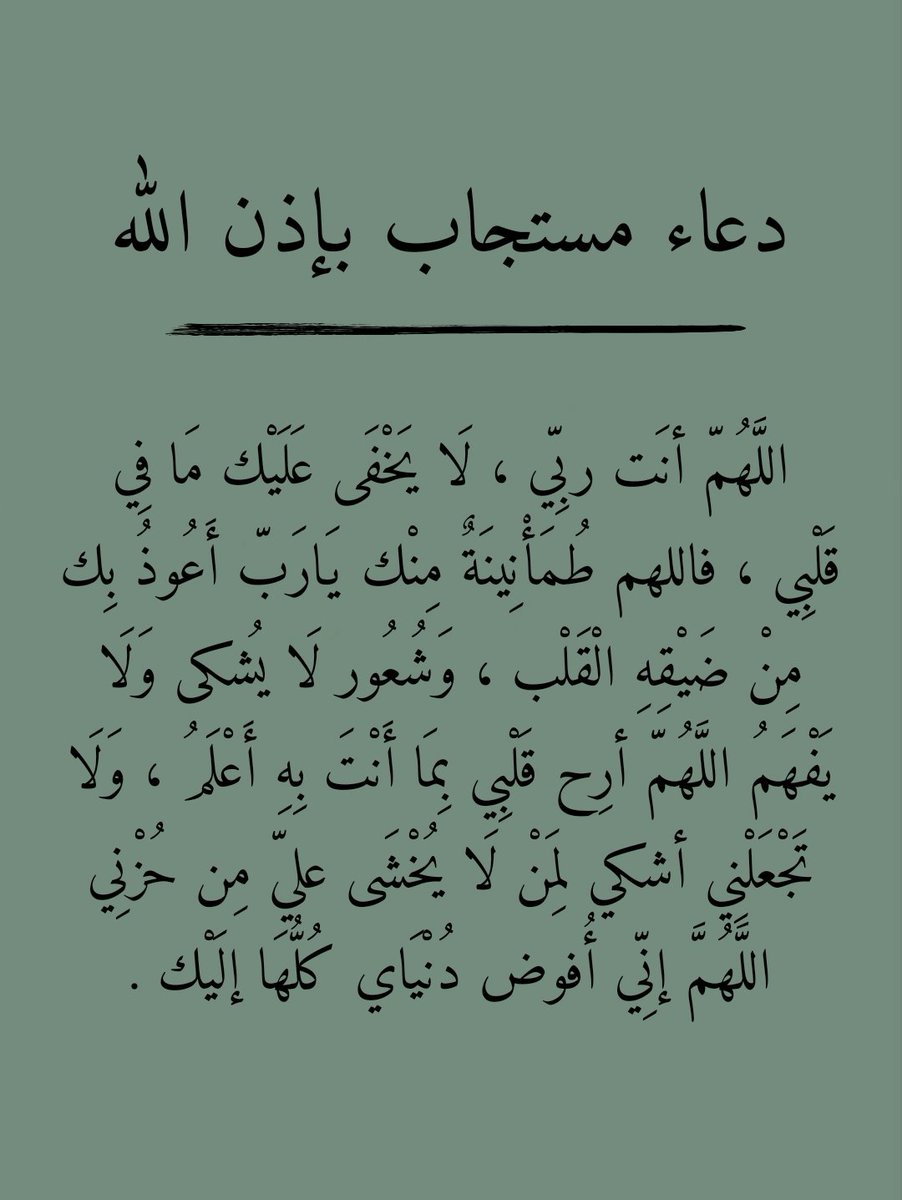 دعاء مستجاب بإذن الله
اللَّهُمّ أنَت ربِّي ، لَا يَخْفَى عَلَيْك مَا فِي
قَلْبِي ، فاللهم طُمَأْنِينَةٌ مِنْك يَارَبّ أَعُوذُ بِك
مِنْ ضَيْقِهِ الْقَلْب ، وَشُعُور لَا يُشكى وَلَا
يَفْهَمُ اللَّهُمّ أرِح قَلْبِي بِمَا أَنْتَ بِهِ أَعْلَمُ ، وَلَا
تَجْعَلْنِي أشكي لِمَنْ لَا يُخْشَى عليّ مِن حُزْنِي
اللَّهُمَّ إنِّي أُفوض دُنْيَاي كُلُّهَا إلَيْك .